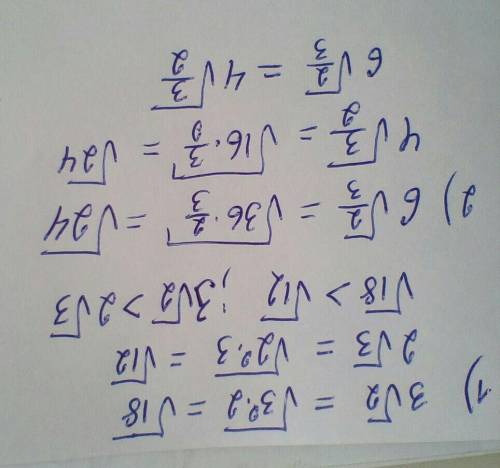 1) 3√2 = √3²·2 = √18
2√3 = √2²·3 = √12
√18 > √12 ; 3√2 > 2√3
2) 6√2/3 = √36·2/3 = √24
4√3/2 = √16·3/2 = √24
6√2/3 = 4√3/2